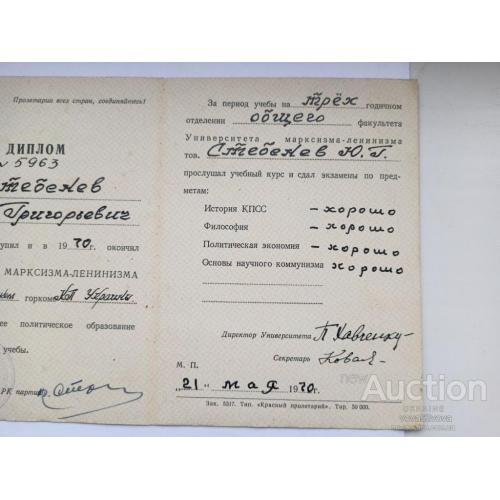 Пролетарии всех стран, соединяйтесь!
ДИПЛОМ
№ 5963
тебенев
Григорьевич
тупил и в 1970. окончил
МАРКСИЗМА-ЛЕНИНИЗМА
горкома КП Украины
ее политическое образование
учебы.
РК партии
За период учебы на трёх годичном
отделении общего факультета
Университета марксизма-ленинизма
тов. Стебенев Ю. Г.
прослушал учебный курс и сдал экзамены по пред-
метам:
История КПСС - хорошо
Философия - хорошо
Политическая экономия - хорошо
Основы научного коммунизма хорошо
Директор Университета
Секретарь
М. П.
„21" мая 1970г.
Зак. 5317. Тип. «Красный пролетарий». Тир. 50 000.
Auction
UKRAINE